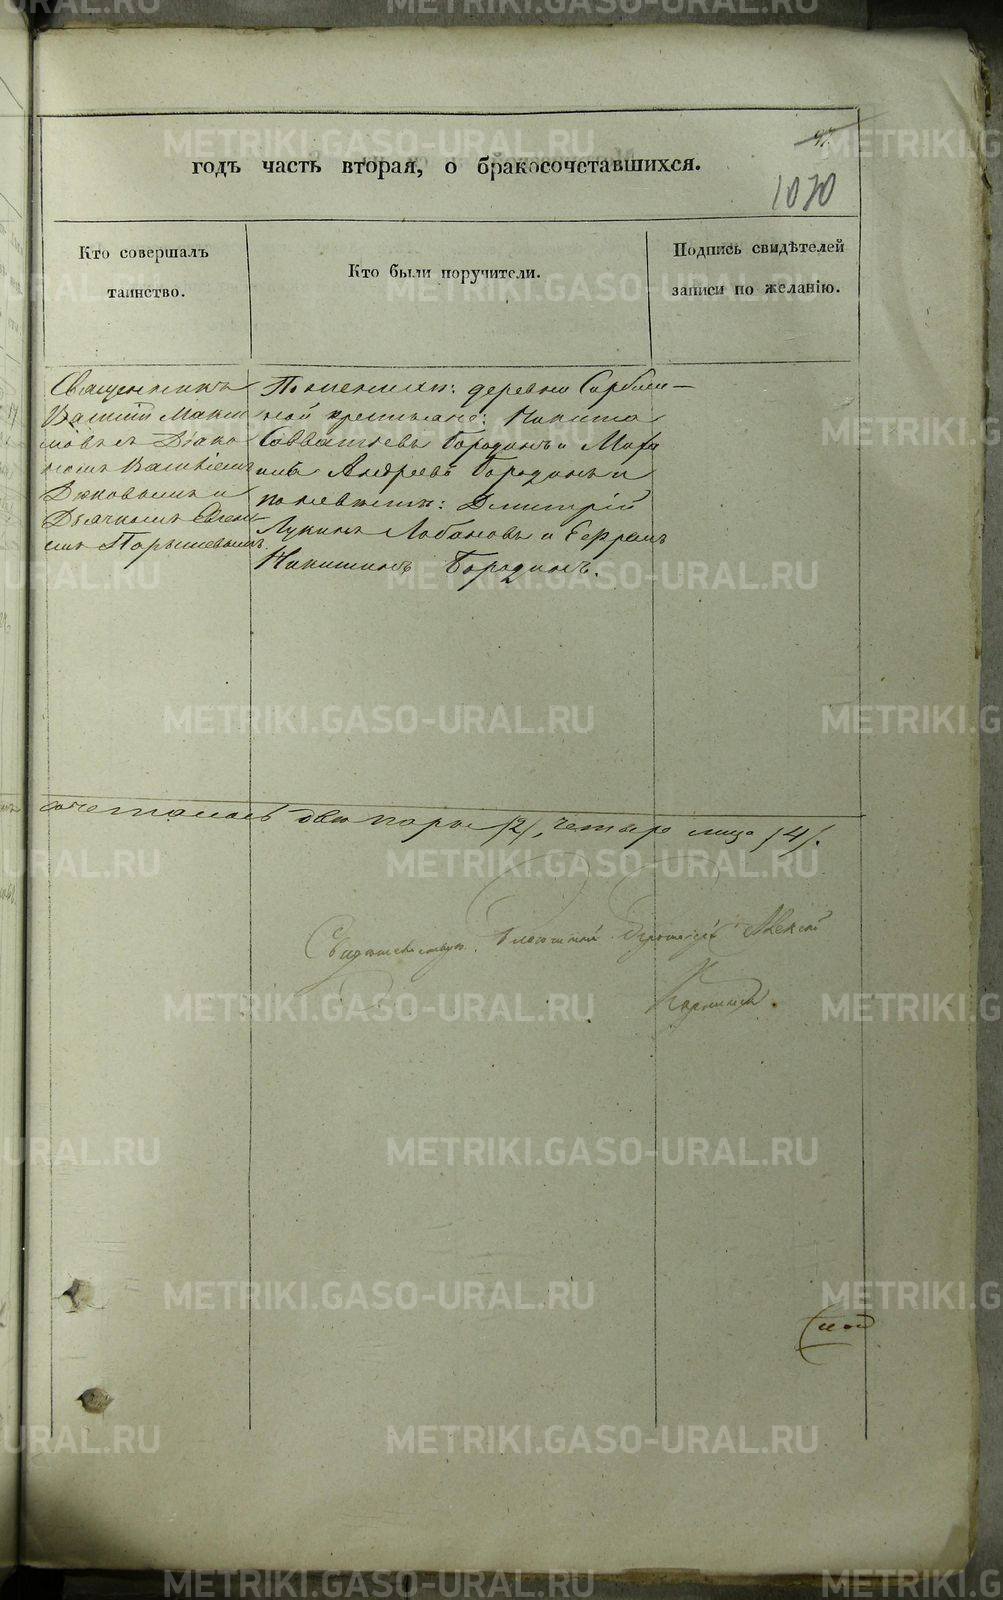 97
годъ часть вторая, о бракосочетавшихся.
1070
Кто совершалъ таинство.
Кто были поручители.
Подпись свидѣтелей записи по желанію.
Священникъ
Василій
мовъ съ Діако
номъ Василіемъ
и
Дьячкомъ Евгені
емъ Парышевымъ.
По женихѣ: деревни
ной крестьяне: Никита
Савватіевъ Бородинъ и
Андреевъ Бородинъ и
по невѣстѣ: Димитрій
Лукинъ Лобановъ и Ефремъ
Никитинъ Бородинъ.
сочеталось двѣ пары /2/, четыре лица /4/.
Свидѣтельствовалъ Благочинный Іерей Алексій
METRIKI.GASO-URAL.RU